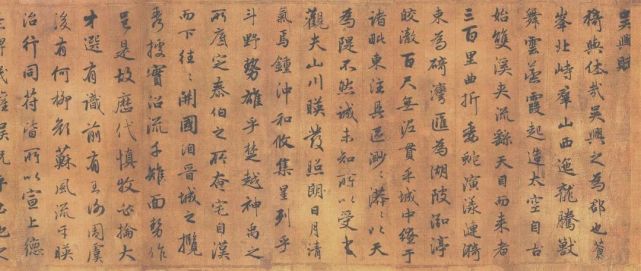 吳興賦
猗與休哉吳興之為郡也蒼
峯北峙羣山西迤龍騰獸
舞雲蒸霞起造太空自古
始雙溪夾流繇天目而來者
三百里曲折委蛇演漾漣漪
束為碕灣匯為湖陂泓渟
皎澈百尺無泥貫乎城中繚于
諸毗東注具區渺〻漭〻以天
為隄不然誠未知所以受之
觀夫山川映發照朗日月清
氣焉鍾沖和攸集星列乎
斗野勢雄乎楚越神禹之
所底定泰伯之所奄宅自漢
而下往〻開國洎晉城之攬
秀據實沿流千雉面勢作
邑是故歷代慎牧必掄大
才選有識前有王謝周虞
後有何柳顏蘇風流互映
治行同符皆所以宣上德